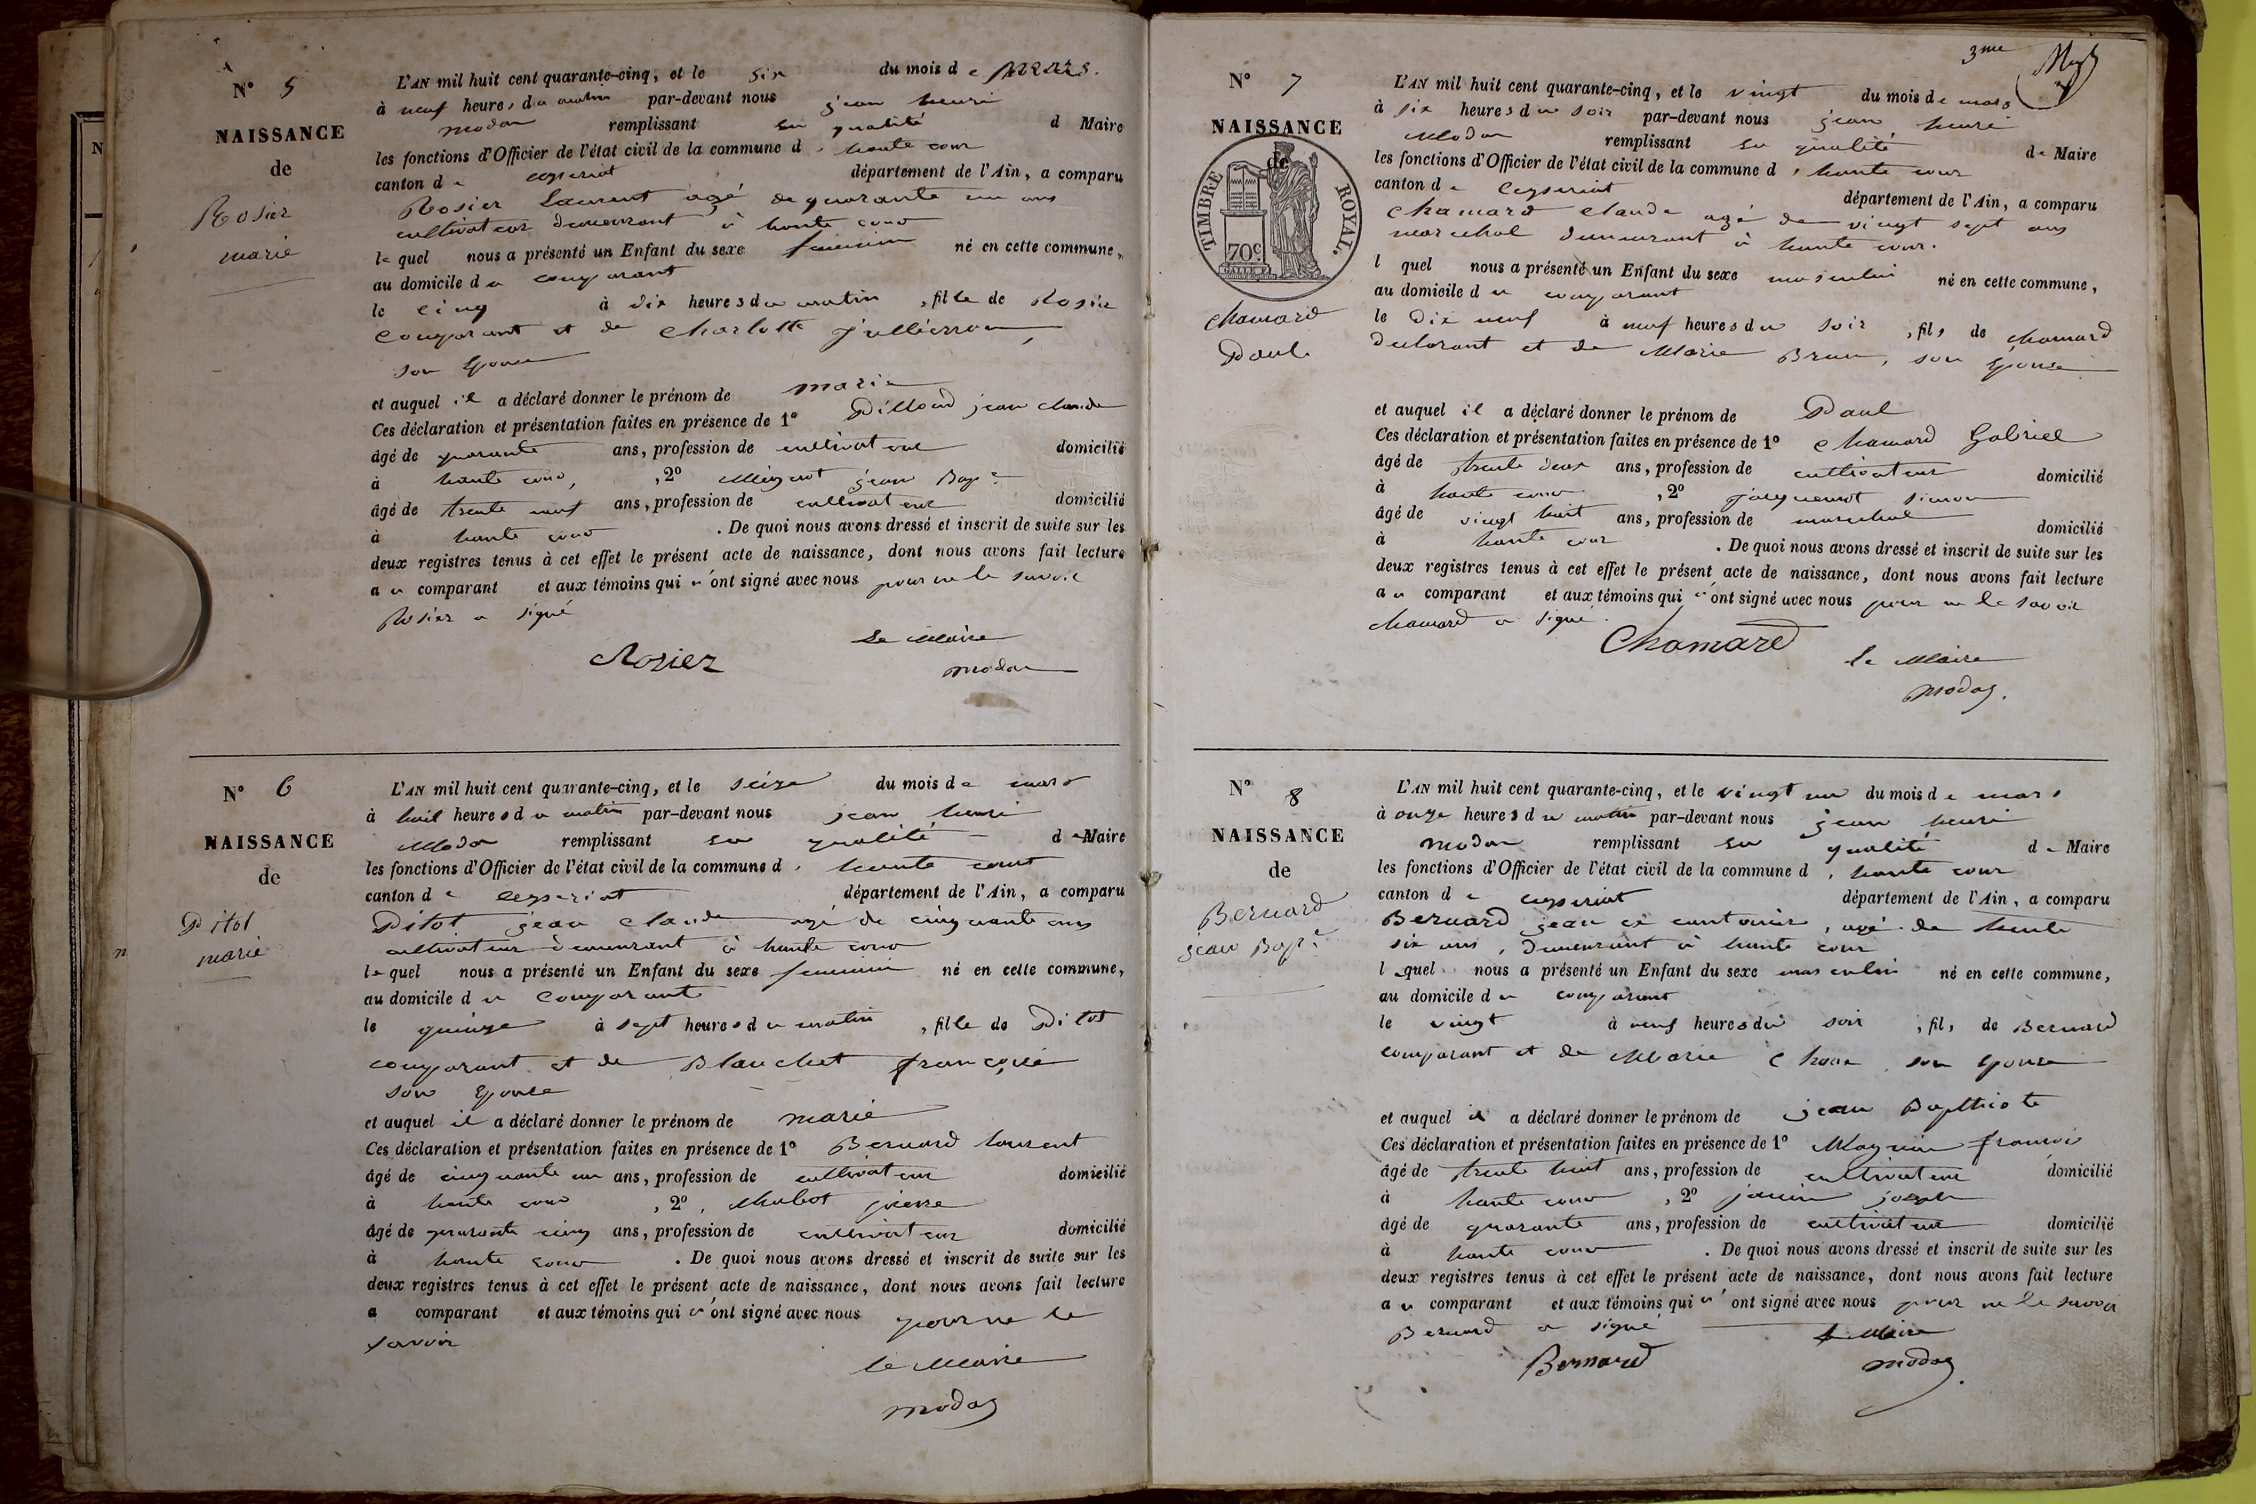 N° 5
NAISSANCE
de
Rosier
marie
L'AN mil huit cent quarante-cinq, et le six du mois de mars.
à neuf heures du matin par-devant nous jean henri
modas remplissant sa qualité d Maire
les fonctions d'Officier de l'état civil de la commune d' haute cour
canton de ceyseriat département de l'Ain, a comparu
Rosier Laurent agé de quarante un ans
cultivateur demeurant à haute cour
lequel nous a présenté un Enfant du sexe feminin né en cette commune,
au domicile du comparant
le cinq à dix heures du matin, fille de Rosier
comparant et de Charlotte
son épouse
et auquel il a déclaré donner le prénom de marie
Ces déclaration et présentation faites en présence de 1° Pilloud jean claude
âgé de quarante ans, profession de cultivateur domicilié
à haute cour, 2° jean Bap.e
âgé de trente neuf ans, profession de cultivateur domicilié
à haute cour. De quoi nous avons dressé et inscrit de suite sur les
deux registres tenus à cet effet le présent acte de naissance, dont nous avons fait lecture
au comparant et aux témoins qui n'ont signé avec nous pour ne le savoir
Rosier a signé
Le Maire
Rosier
modas
N° 6
NAISSANCE
de
Pitol
marie
L'AN mil huit cent quarante-cinq, et le seize du mois de mars
à huit heures du matin par-devant nous jean henri
Modas remplissant sa qualité de Maire
les fonctions d'Officier de l'état civil de la commune d' haute cour
canton de ceyseriat département de l'Ain, a comparu
Pitol jean Claude agé de cinquante ans
cultivateur demeurant à haute cour
lequel nous a présenté un Enfant du sexe feminin né en cette commune,
au domicile du comparant
le quinze à sept heures du matin, fille de Pitol
comparant et de Blanchet françoise
son épouse
et auquel il a déclaré donner le prénom de marie
Ces déclaration et présentation faites en présence de 1° Bernard laurent
âgé de cinquante un ans, profession de cultivateur domicilié
à haute cour, 2°, Chabot pierre
âgé de quarante cinq ans, profession de cultivateur domicilié
à haute cour. De quoi nous avons dressé et inscrit de suite sur les
deux registres tenus à cet effet le présent acte de naissance, dont nous avons fait lecture
a comparant et aux témoins qui n'ont signé avec nous pour ne le
savoir
le Maire
modas
3me
N° 7
NAISSANCE
de
TIMBRE ROYAL.
70c
Chamard
Paul
L'AN mil huit cent quarante-cinq, et le vingt du mois de mars
à six heures du soir par-devant nous jean henri
Modas remplissant sa qualité de Maire
les fonctions d'Officier de l'état civil de la commune d' haute cour
canton de Ceyseriat département de l'Ain, a comparu
Chamard claude agé de vingt sept ans
marechal demeurant à haute cour.
l quel nous a présenté un Enfant du sexe masculin né en cette commune,
au domicile du comparant
le Dix neuf à neuf heures du soir, fils de chamard
declarant et de Marie Brun, son épouse
et auquel il a déclaré donner le prénom de Paul
Ces déclaration et présentation faites en présence de 1° Chamard Gabriel
âgé de trente deux ans, profession de cultivateur domicilié
à haute cour, 2° jacquemot simon
âgé de vingt huit ans, profession de marechal domicilié
à haute cour. De quoi nous avons dressé et inscrit de suite sur les
deux registres tenus à cet effet le présent acte de naissance, dont nous avons fait lecture
au comparant et aux témoins qui n'ont signé avec nous pour ne le savoir
chamard a signé.
Chamard
le Maire
modas.
N° 8
NAISSANCE
de
Bernard
jean Bap.e
L'AN mil huit cent quarante-cinq, et le vingt un du mois de mars
à onze heures du matin par-devant nous jean henri
modas remplissant sa qualité de Maire
les fonctions d'Officier de l'état civil de la commune d' haute cour
canton de ceyseriat département de l'Ain, a comparu
Bernard jean ex cantonier, agé de trente
six ans, demeurant à haute cour
lequel nous a présenté un Enfant du sexe masculin né en cette commune,
au domicile du comparant
le vingt à neuf heures du soir, fils de Bernard
comparant et de Marie son épouse
et auquel il a déclaré donner le prénom de jean Bapthiste
Ces déclaration et présentation faites en présence de 1° Magnin francois
âgé de trente huit ans, profession de cultivateur domicilié
à haute cour, 2° janin joseph
âgé de quarante ans, profession de cultivateur domicilié
à haute cour. De quoi nous avons dressé et inscrit de suite sur les
deux registres tenus à cet effet le présent acte de naissance, dont nous avons fait lecture
au comparant et aux témoins qui n'ont signé avec nous pour ne le savoir
Bernard a signé
le Maire
Bernard
modas